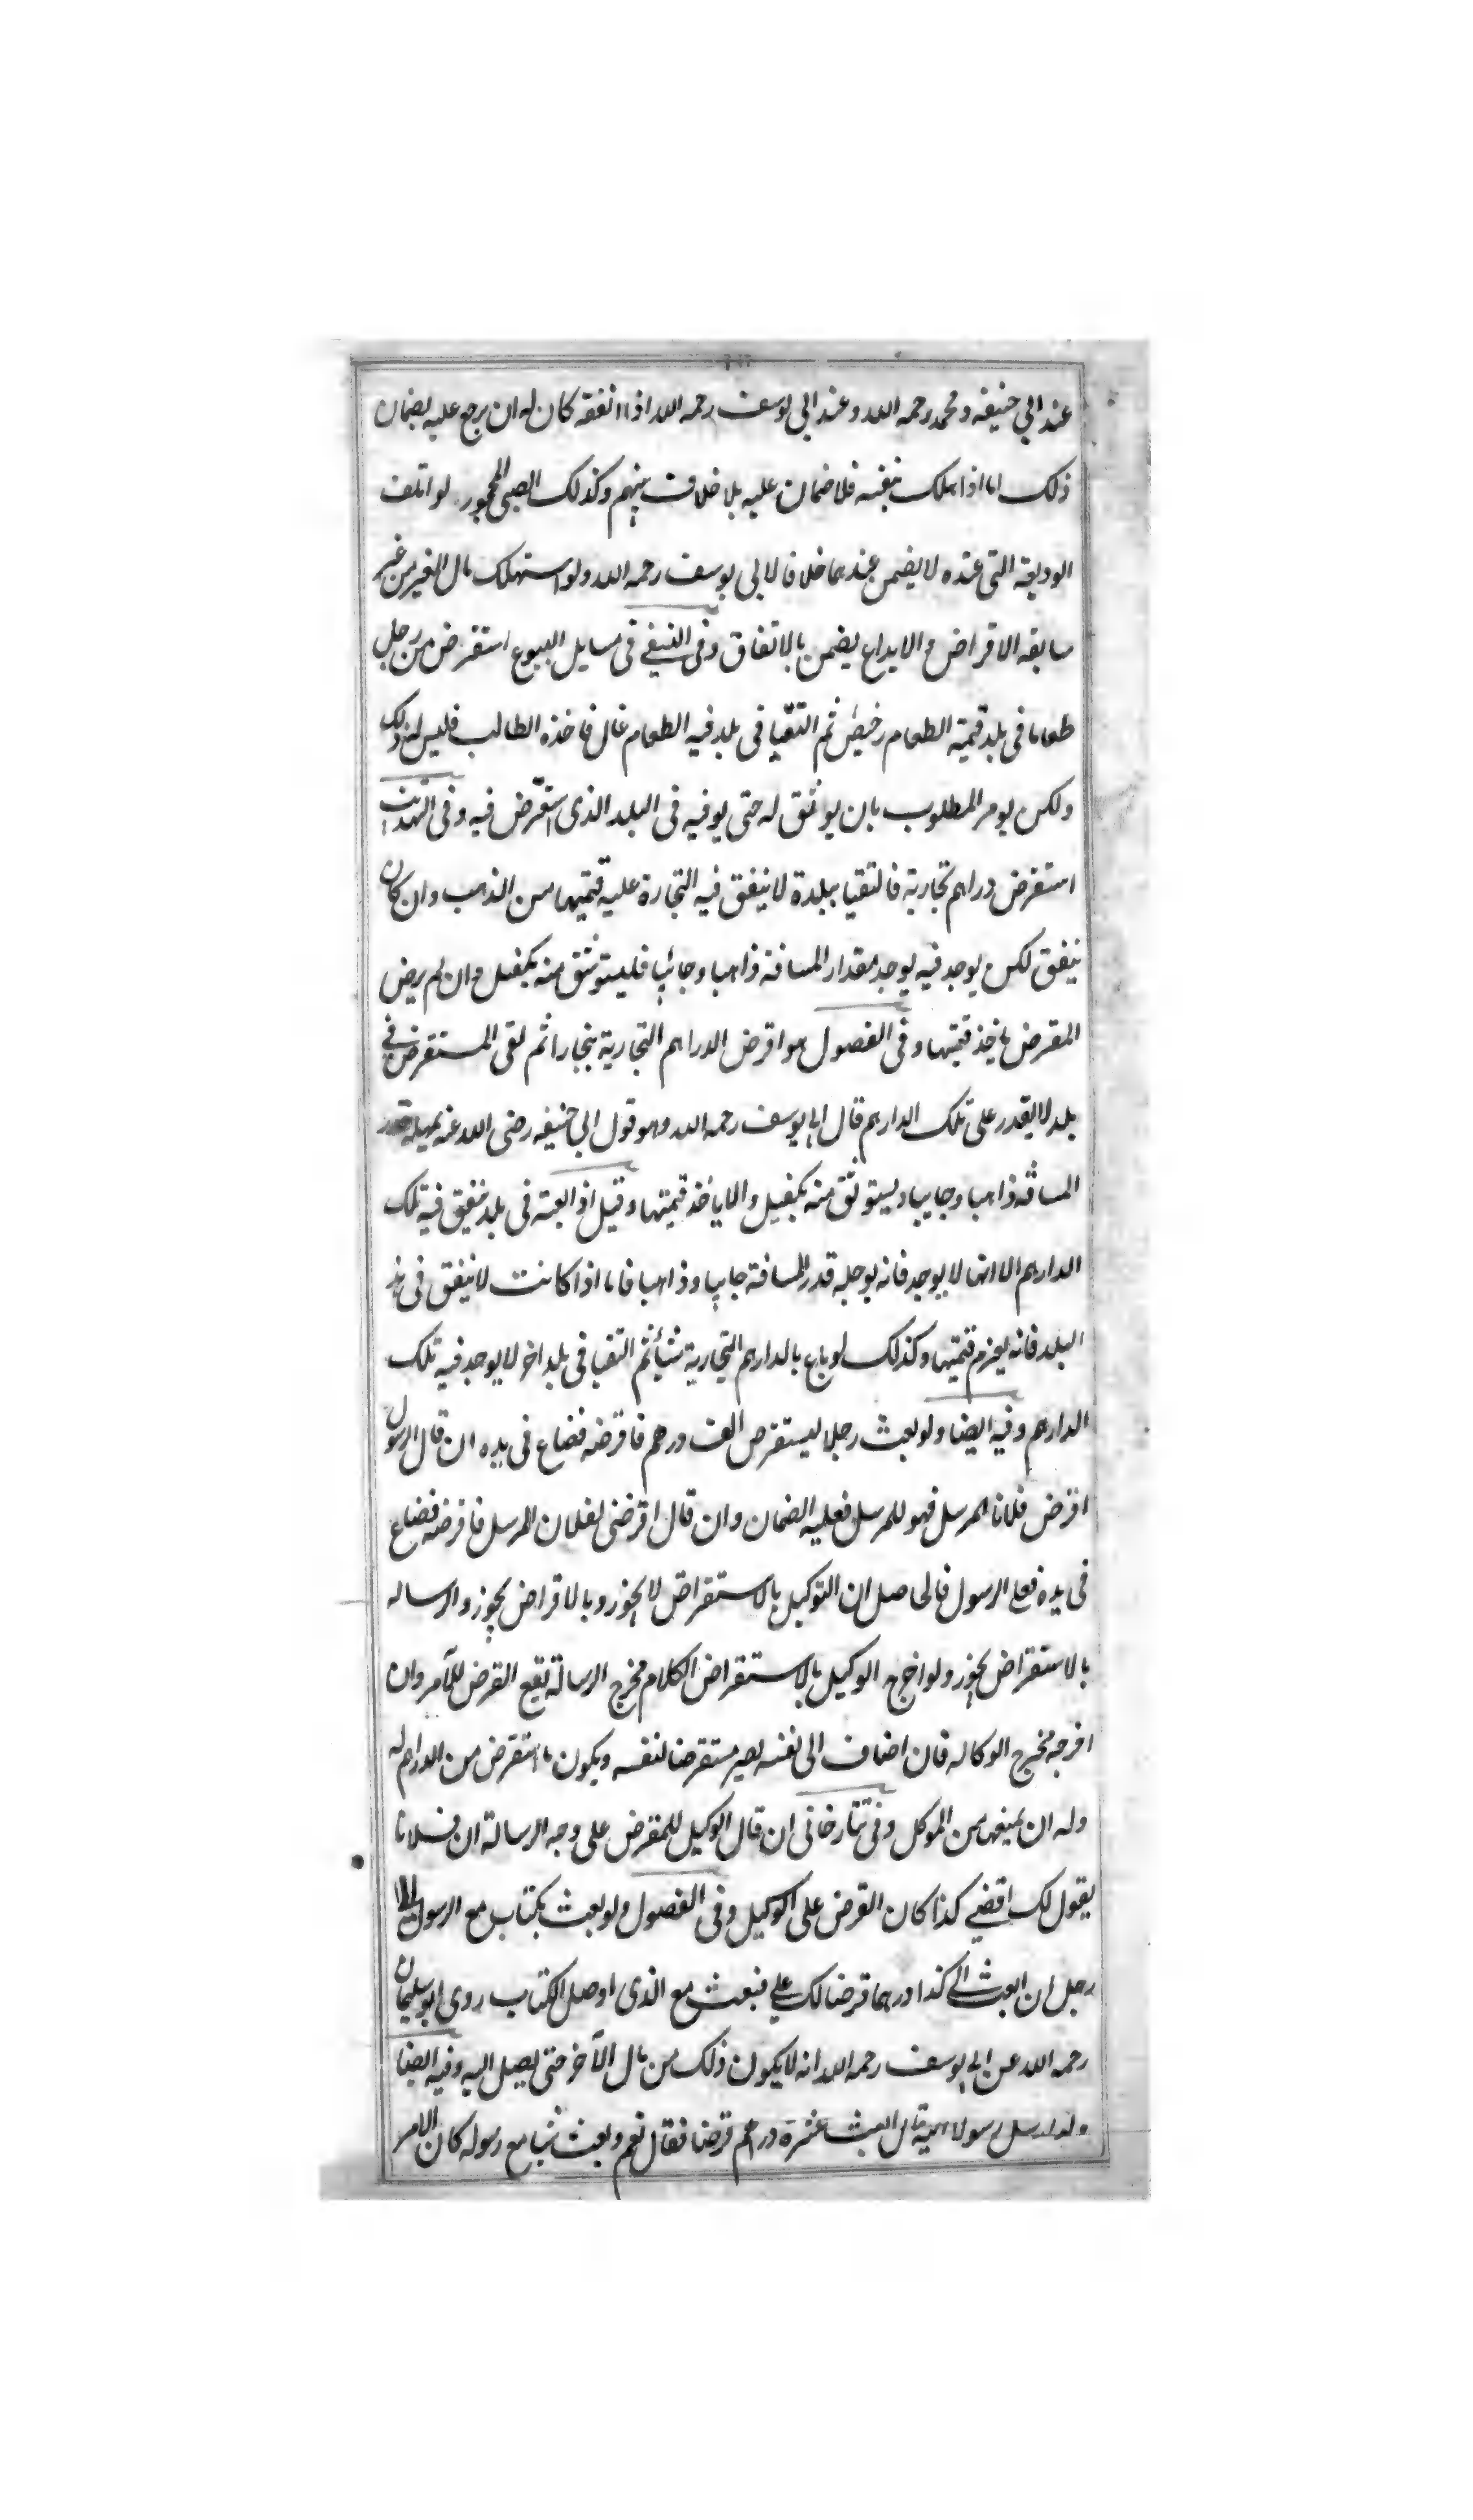 عند ابي حنيفه ومحمد رحمه الله وعند ابي يوسف رحمه الله اذا انفقه كان له ان يرجع عليه بضمان
ذلك اما اذا هلك بنفسه فلا ضمان عليه بلا خلاف بينهم وكذلك الصبى المحجور لو اتلف
الوديعة التى عنده لا يضمن عندهما خلافا لابى يوسف رحمه الله ولو استهلك مال الغير من غير
سابقه الاقراض والايداع يضمن بالاتفاق وفى النسفي فى مسايل البيوع استقرض من رجل
طعاما فى بلد قيمة الطعام رخيص ثم التقيا فى بلد فيه الطعام غال فاخذه الطالب فليس له ذلك
ولكن يومر المطلوب بان يوثق له حتى يوفيه فى البلد الذى استقرض فيه وفى التهذيب
استقرض دراهم تجارية فالتقيا ببلدة لا ينفق فيه التجارة عليه قيمتها من الذهب وان كان
ينفق لكن يوجد فيه يوجد مقدار المسافة ذاهبا وجائيا فليستوثق منه بكفيل وان لم يرض
المقرض ياخذ قيمتها وفى الفصول هو اقرض الدراهم التجارية بنجارا ثم لقى المستقرض فى
بلد لا يقدر على تلك الدارهم قال ابو يوسف رحمه الله وهو قول ابي حنيفه رضى الله عنه يمهله قدر
المسافه ذاهبا وجاييا ويستوثق منه بكفيل والا ياخذ قيمتها وقيل اذ القيته فى بلد ينفق فيه تلك
الدارهم الا انها لا يوجد فانه يوجله قدر المسافة جاييا وذاهبا فاما اذا كانت لا ينفق فى هذ
البلد فانه يغرم قيمتها وكذلك لو باع بالدارهم التجارية شيأ ثم التقيا فى بلد اخر لا يوجد فيه تلك
الدارهم وفيه ايضا ولو بعث رجلا ليستقرض الف درهم فاقرضه فضاع فى يده ان قال الرسول
اقرض فلانا المرسل فهو للمرسل فعليه الضمان وان قال اقرضنى لفلان المرسل فاقرضه فضاع
فى يده فعلى الرسول فالحاصل ان التوكيل بالاستقراض لا يجوز وبالاقراض يجوز والرساله
بالاستقراض يجوز ولو اخرج الوكيل بالاستقراض الكلام مخرج الرسالة يقع القرض للآمر وان
اخرجه مخرج الوكاله فان اضاف الى نفسه يصير مستقرضا لنفسه ويكون ما استقرض من الدارهم له
وله ان يمنعها من الموكل وفى تتارخانى ان قال الوكيل للمقرض على وجه الرسالة ان فلانا
يقول لك اقضني كذا كان القرض على الوكيل وفى الفصول ولو بعث بكتاب مع الرسول الى
رجل ان ابعث الي كذا درهما قرضا لك علي فبعث مع الذى اوصل الكتاب روى ابو سليمان
رحمه الله عن ابي يوسف رحمه الله انه لا يكون ذلك من مال الآخر حتى يصل اليه وفيه ايضا
ولو ارسل رسولا اليه قال ابعث عشرة دراهم قرضا فقال نعم وبعث بها مع رسوله كان الامر